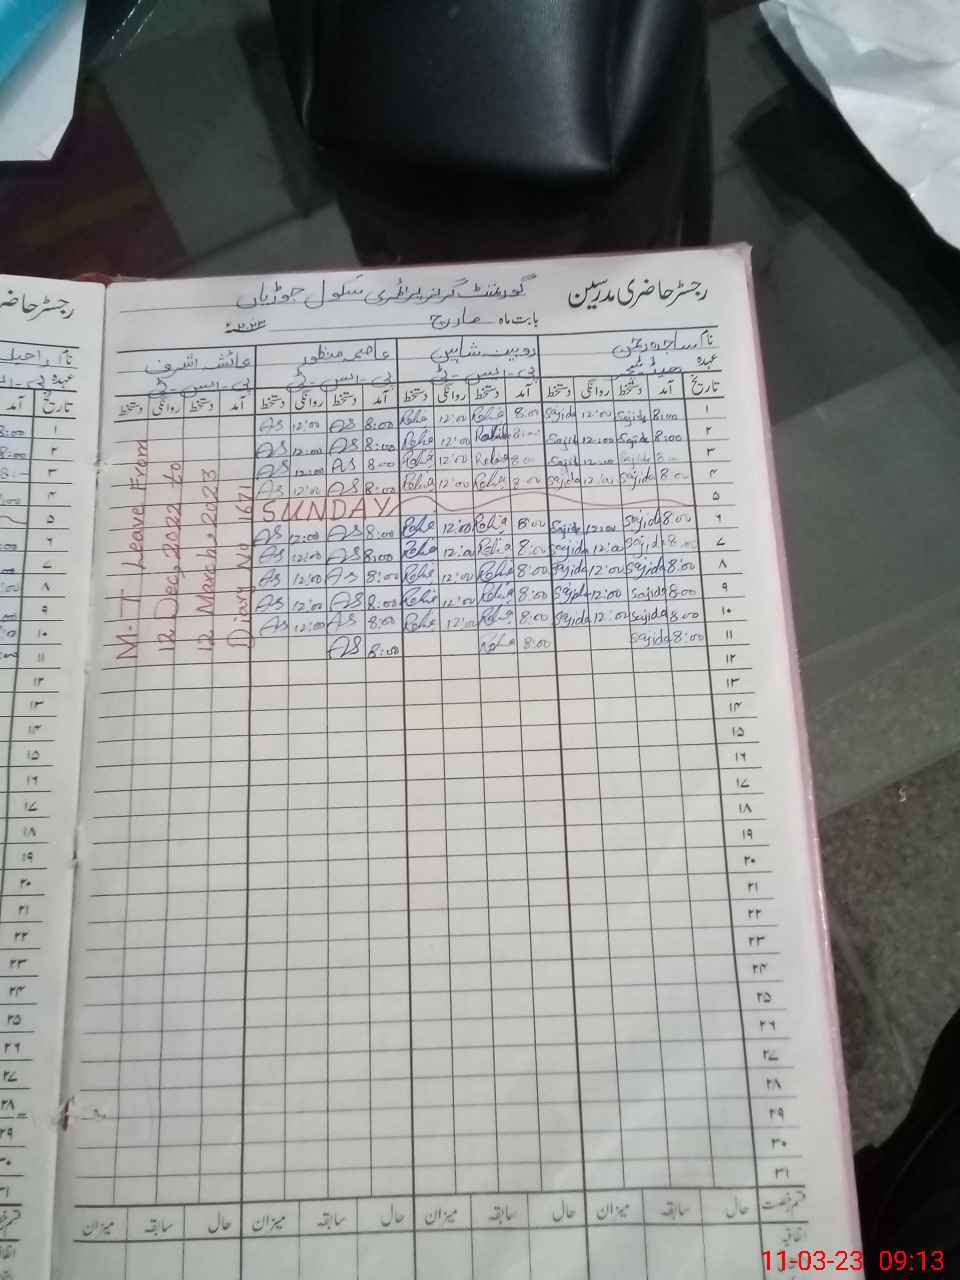 رجسٹر حاضری مدرسین گورنمنٹ گرلز پرائمری سکول جوڑیاں
بابت ماہ مارچ ۲۰۲۳ء
نام ساجدہ رحمٰن روبینہ شاہین عاصمہ منظور عائشہ اشرف
عہدہ ہیڈ ٹیچر پی-ایس-ٹی پی-ایس-ٹی پی-ایس-ٹی
تاریخ آمد دستخط روانگی دستخط آمد دستخط روانگی دستخط آمد دستخط روانگی دستخط آمد دستخط روانگی دستخط
۱ 8:00 Sajida 12:00 Sajida 8:00 Robia 12:00 Robia 8:00 AS 12:00 AS
۲ 8:00 Sajida 12:00 Sajida 8:00 Robia 12:00 Robia 8:00 AS 12:00 AS
۳ 8:00 Sajida 12:00 Sajida 8:00 Robia 12:00 Robia 8:00 AS 12:00 AS
۴ 8:00 Sajida 12:00 Sajida 8:00 Robia 12:00 Robia 8:00 AS 12:00 AS
۵ SUNDAY
۶ 8:00 Sajida 12:00 Sajida 8:00 Robia 12:00 Robia 8:00 AS 12:00 AS
۷ 8:00 Sajida 12:00 Sajida 8:00 Robia 12:00 Robia 8:00 AS 12:00 AS
۸ 8:00 Sajida 12:00 Sajida 8:00 Robia 12:00 Robia 8:00 AS 12:00 AS
۹ 8:00 Sajida 12:00 Sajida 8:00 Robia 12:00 Robia 8:00 AS 12:00 AS
۱۰ 8:00 Sajida 12:00 Sajida 8:00 Robia 12:00 Robia 8:00 AS 12:00 AS
۱۱ 8:00 Sajida 8:00 Robia 8:00 AS
M-T Leave From
12 Dec, 2022 to
12 March, 2023
Diary No 1671
۱۲
۱۳
۱۴
۱۵
۱۶
۱۷
۱۸
۱۹
۲۰
۲۱
۲۲
۲۳
۲۴
۲۵
۲۶
۲۷
۲۸
۲۹
۳۰
۳۱
قسم رخصت حال سابقہ میزان حال سابقہ میزان حال سابقہ میزان حال سابقہ میزان
اتفاقیہ
رجسٹر حاضر
نام راحیلہ
عہدہ پی-ایس
تاریخ آمد
۱ 8:00
۲ 8:00
۳ 8:
۴
۵
۶
۷
۸
۹
۱۰
۱۱
۱۲
۱۳
۱۴
۱۵
۱۶
۱۷
۱۸
۱۹
۲۰
۲۱
۲۲
۲۳
۲۴
۲۵
۲۶
۲۷
۲۸
۲۹
۳۰
۳۱
11-03-23 09:13